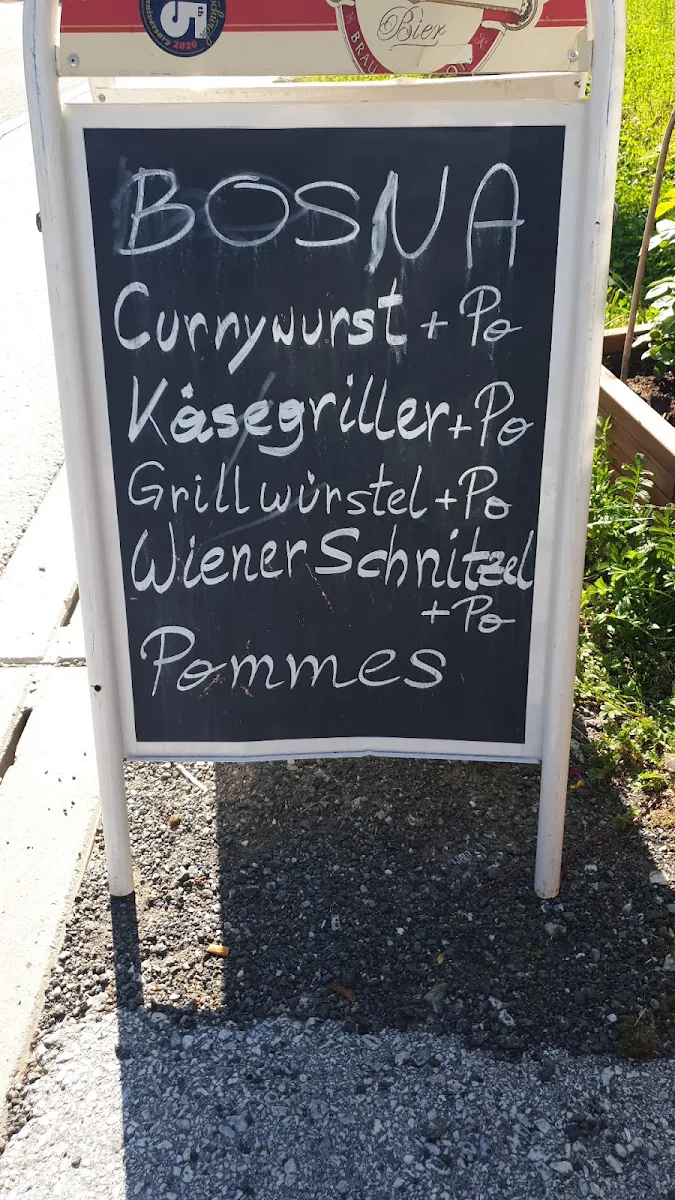 5th
2020
Bier
BOSNA
Currywurst + Po
Käsegriller + Po
Grillwürstel + Po
Wiener Schnitzel
+ Po
Pommes